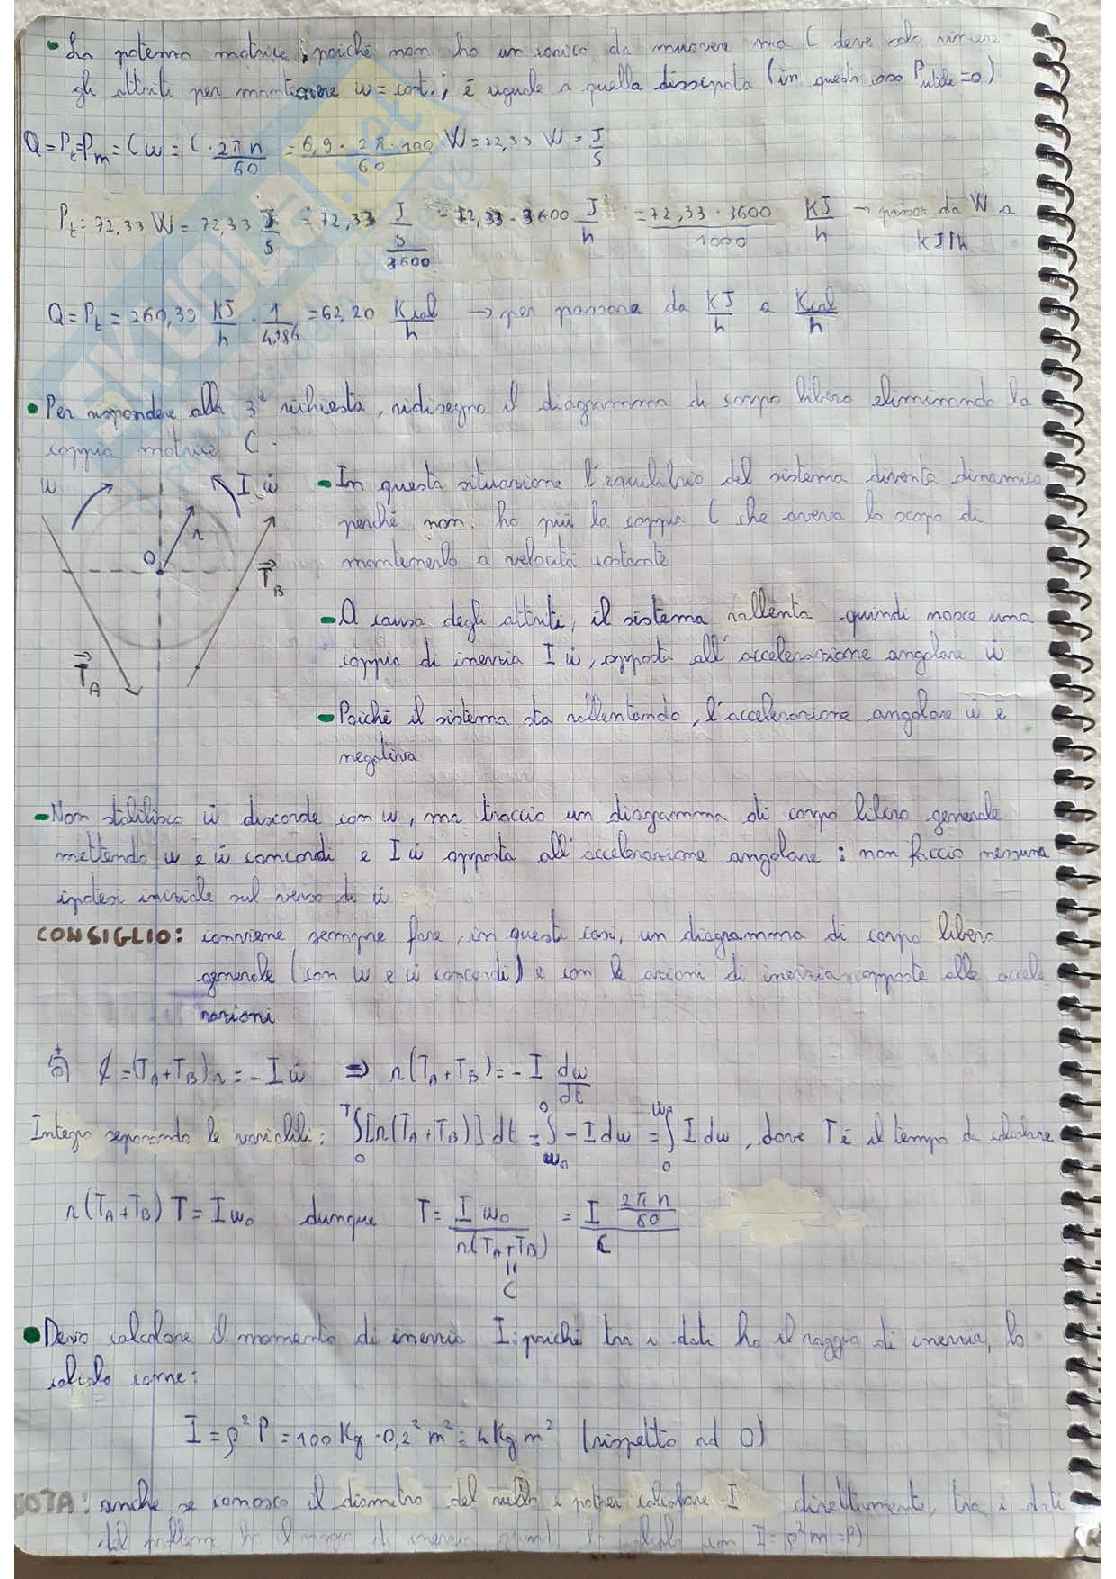 • La potenza motrice, poiché non ho un carico da muovere ma C deve solo vincere
gli attriti per mantenere ω = cost., è uguale a quella dissipata (in questo caso Putile = 0)
Q = Pt = Pm = Cω = C · 2πn/60 = 6,9 · 2π · 100/60 W = 72,33 W = J/s
Pt = 72,33 W = 72,33 J/s = 72,33 J/(s/3600) = 72,33 · 3600 J/h = 72,33 · 3600/1000 KJ/h → da W a KJ/h
Q = Pt = 260,39 KJ/h · 1/4,186 = 62,20 Kcal/h → per passare da KJ/h a Kcal/h
• Per rispondere alla 3ª richiesta, ridisegno il diagramma di corpo libero eliminando la
coppia motrice C.
ω
I ω̇
r
O
T⃗B
T⃗A
- In questa situazione l'equilibrio del sistema diventa dinamico
perché non ho più la coppia C che aveva lo scopo di
mantenerlo a velocità costante
- A causa degli attriti, il sistema rallenta quindi nasce una
coppia di inerzia I ω̇, opposta all'accelerazione angolare ω̇
- Poiché il sistema sta rallentando, l'accelerazione angolare ω̇ è
negativa
- Non stabilisco ω̇ discorde con ω, ma traccio un diagramma di corpo libero generale
mettendo ω e ω̇ concordi e I ω̇ opposta all'accelerazione angolare: non faccio nessuna
ipotesi iniziale sul verso di ω̇
CONSIGLIO: conviene sempre fare, in questi casi, un diagramma di corpo libero
generale (con ω e ω̇ concordi) e con le azioni di inerzia opposte alle accele
razioni
(TA + TB) r = - I ω̇ ⇒ r (TA + TB) = - I dω/dt
Integro separando le variabili: ∫₀ᵀ [r (TA + TB)] dt = ∫ - I dω = ∫ I dω, dove T è il tempo da calcolare
r (TA + TB) T = I ω₀ dunque T = I ω₀/r(TA + TB) = I 2πn/60 / C
= C
• Devo calcolare il momento di inerzia I: poiché tra i dati ho il raggio di inerzia, lo
calcolo come:
I = ρ² P = 100 Kg · 0,2² m² = 4 Kg m² (rispetto ad O)
NOTA: anche se conosco il diametro del e potrei calcolare I direttamente, tra i dati
del problema ho il raggio di inerzia quindi lo calcolo con I = ρ² m